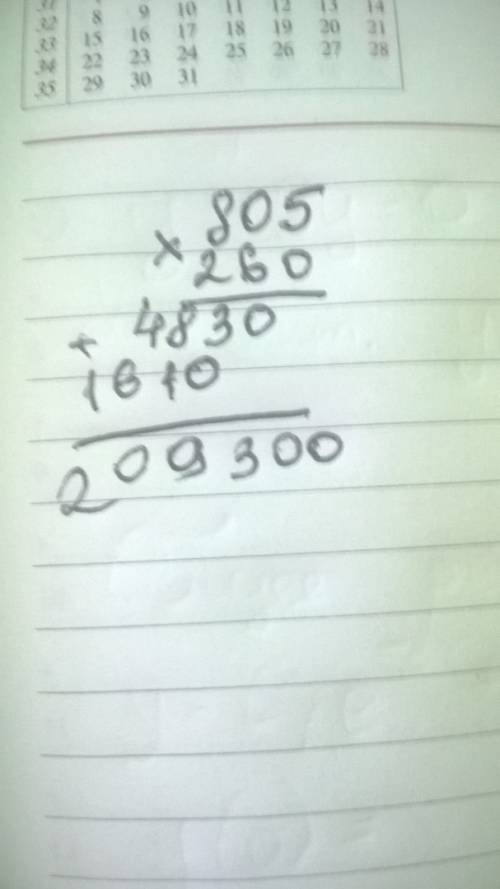 32 8 9 10 11 12 13 14
33 15 16 17 18 19 20 21
34 22 23 24 25 26 27 28
35 29 30 31
805
× 260
4830
+
1610
209300